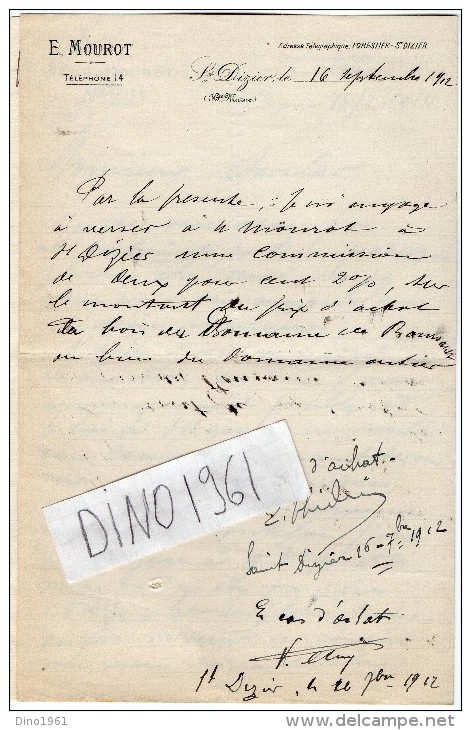 E. MOUROT
TÉLÉPHONE 14
Adresse Télégraphique, FORESTIER-ST DIZIER
St Dizier, le 16 septembre 1912
(Hte Marne)
Par la présente, je m'engage
à verser à M Mourot à
St Dizier une commission
de deux pour cent 2%, sur
le montant du prix d'achat
du bois du Domaine de
ou bien du Domaine entier
d'achat.
DINO1961
Saint Dizier 16-7bre 1912
En cas d'achat
St Dizier, le 16 7bre 1912
Dino1961
www.delcampe.net